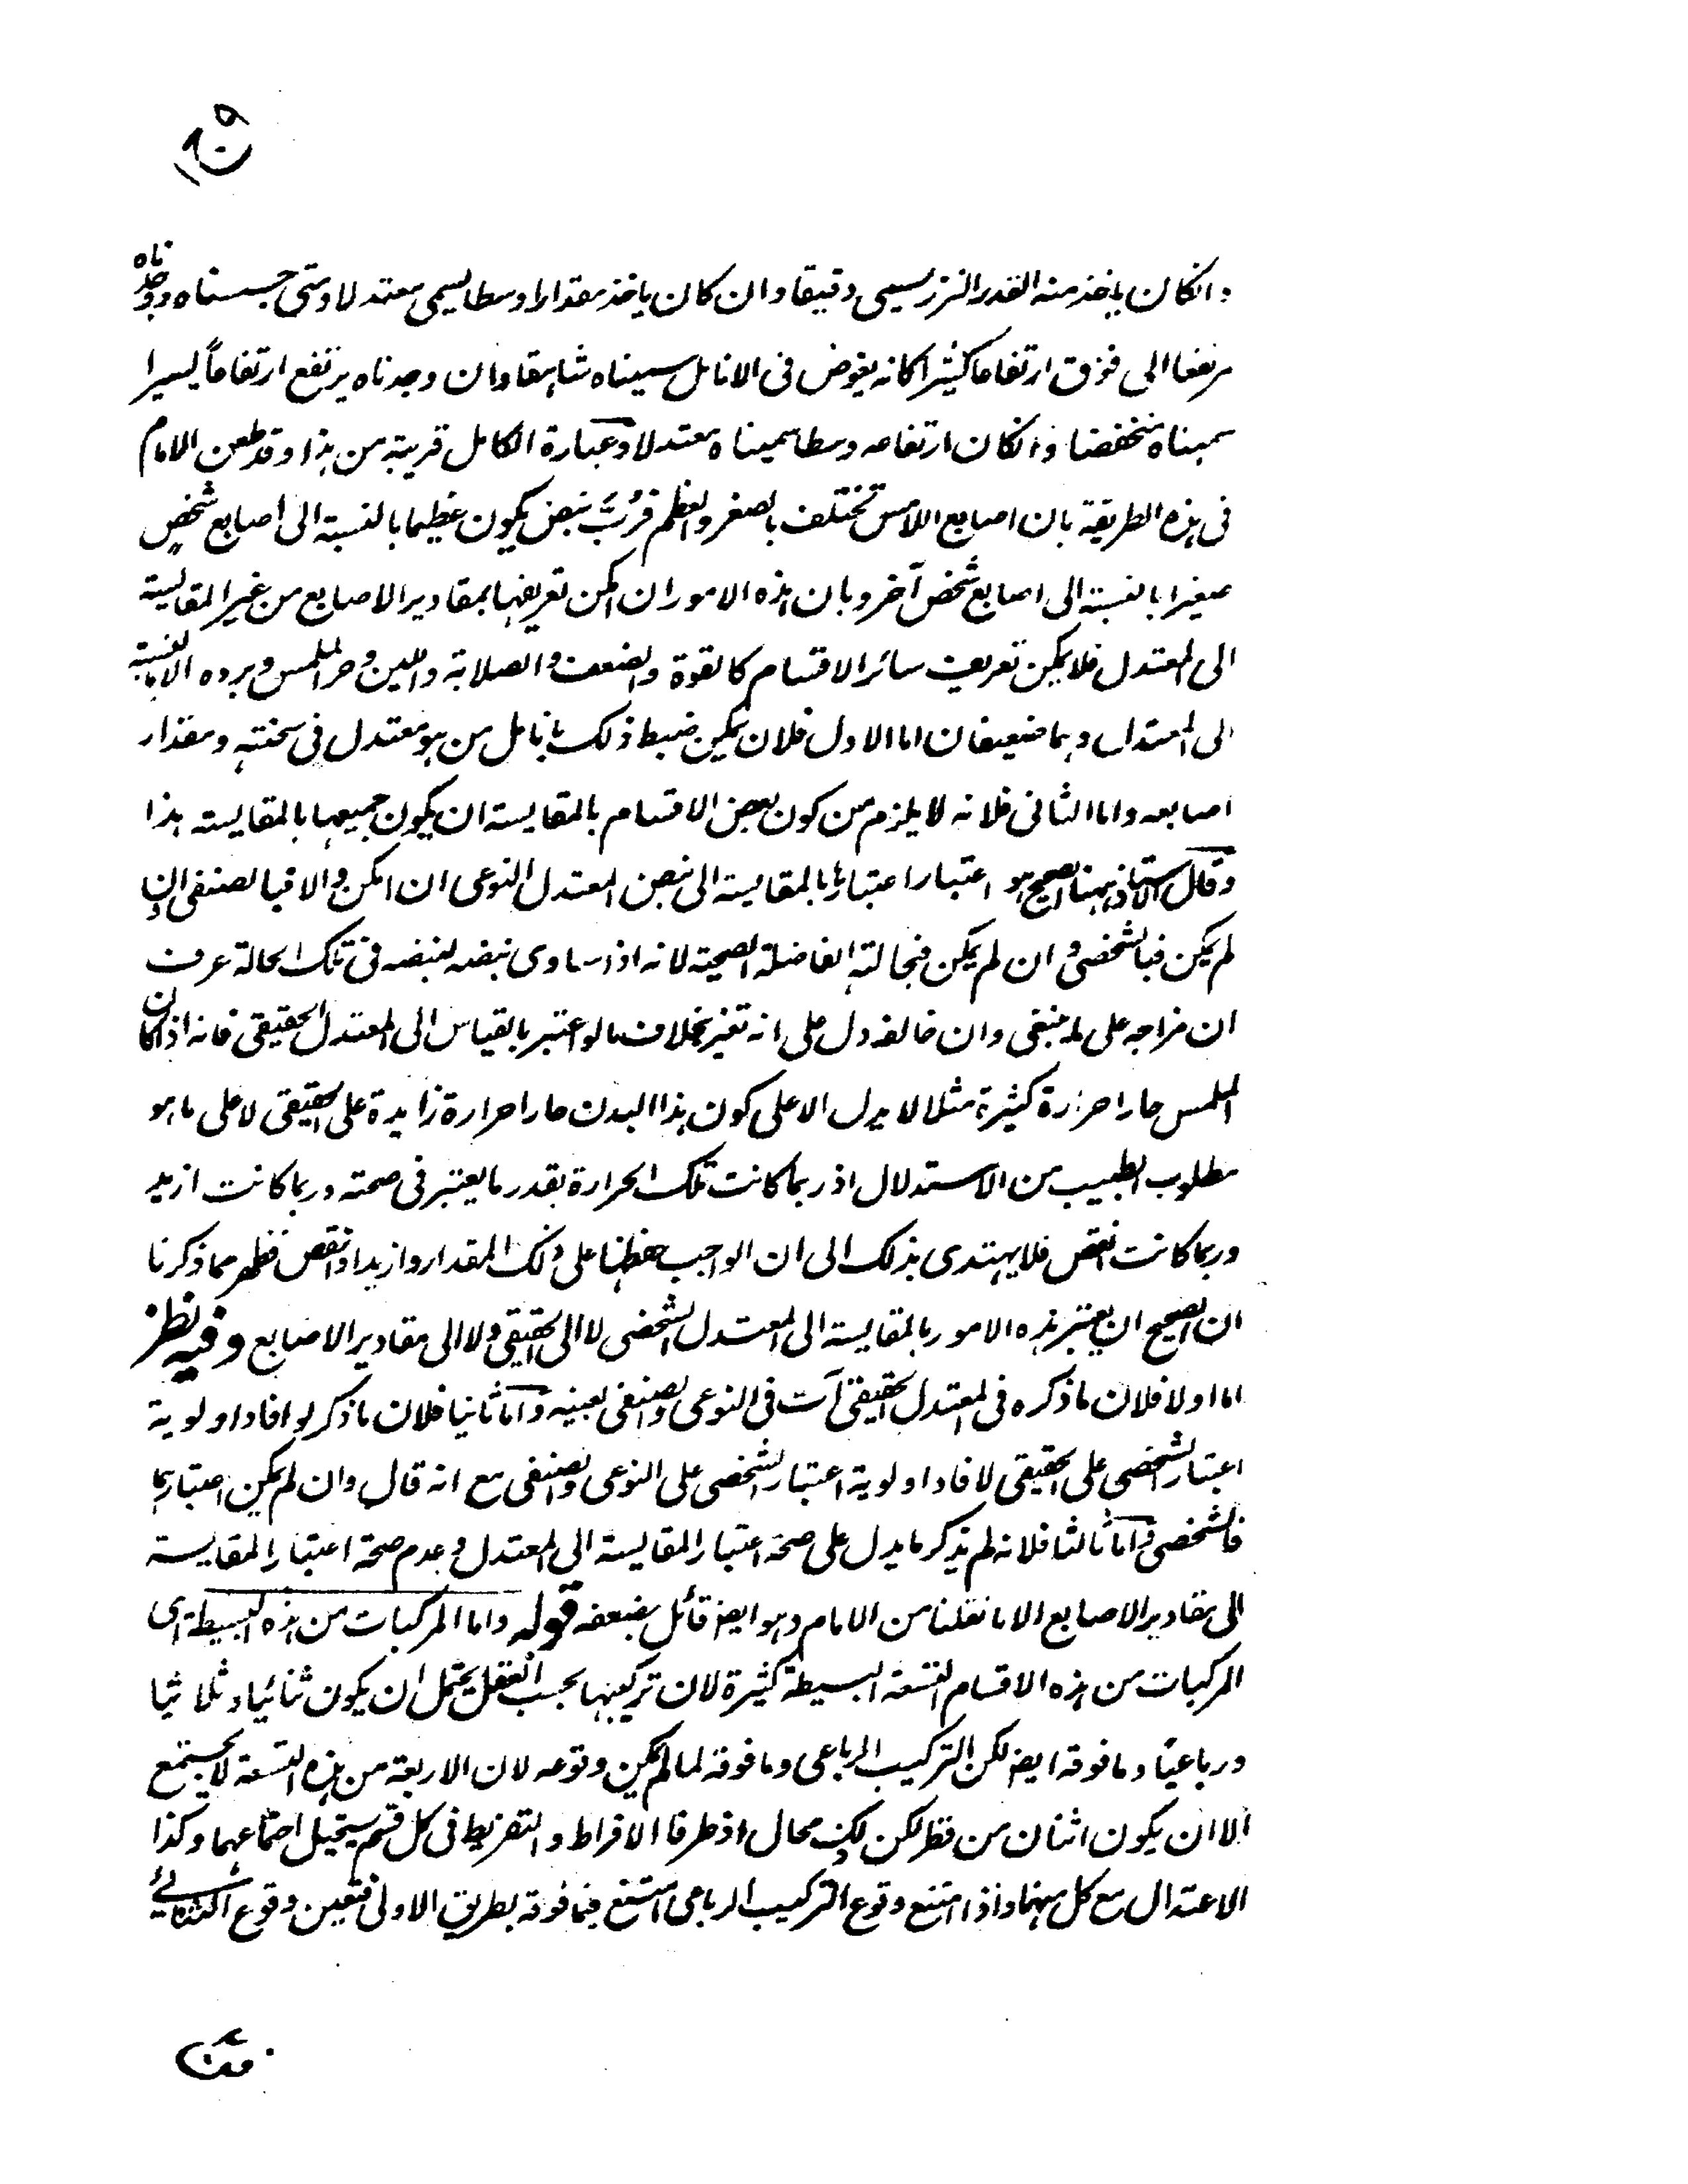 وانكان ياخذ منه القدر النزر يسمى دقيقا وان كان ياخذ مقدارا وسطا يسمى معتدلا ومتى جسسناه ووجدناه
مرتفعا الى فوق ارتفاعا كثيرا كانه يغوض فى الانامل سميناه شاهقا وان وجدناه يرتفع ارتفاعاً يسيرا
سميناه منخفضا وانكان ارتفاعه وسطا سميناه معتدلا وعبارة الكامل قريبة من هذا وقد طعن الامام
فى هذه الطريقة بان اصابع اللامس تختلف بالصغر والعظم فرُبَّ نبض يكون عظيما بالنسبة الى اصابع شخصٍ
صغيرا بالنسبة الى اصابع شخص آخر وبان هذه الامور ان امكن تعريفها بمقادير الاصابع من غير المقايسة
الى المعتدل فلا يمكن تعريف سائر الاقسام كالقوة والضعف والصلابة واللين وحر الملمس وبرده الا بالنسبة
الى المعتدل وهما ضعيفان اما الاول فلان يمكن ضبط ذلك بانامل من هو معتدل فى سخنته ومقدار
اصابعه واما الثانى فلانه لا يلزم من كون بعض الاقسام بالمقايسة ان يكون جميعها بالمقايسة هذا
وقال الاستاذ ههنا الصحيح هو اعتبار اعتبارها بالمقايسة الى نبض المعتدل النوعى ان امكن والا فبالصنفى وان
لم يكن فبالشخصى وان لم يكن فبحالته الفاضلة الصحية لانه اذا ساوى نبضه لنبضه فى تلك الحالة عرف
ان مزاجه على ما ينبغى وان خالفه دل على انه تغير بخلاف ما لو اعتبر بالقياس الى المعتدل الحقيقى فانه اذا كان
الملمس حارا حرارة كثيرة مثلا لا يدل الا على كون هذا البدن حارا حرارة زايدة على الحقيقى لا على ما هو
مطلوب الطبيب من الاستدلال اذ ربما كانت تلك الحرارة بقدر ما يعتبر فى صحته وربما كانت ازيد
وربما كانت انقص فلا يهتدى بذلك الى ان الواجب حفظها على ذلك المقدار او ازيد او انقص فظهر مما ذكرنا
ان الصحيح ان يعتبر هذه الامور بالمقايسة الى المعتدل الشخصى لا الى الحقيقى ولا الى مقادير الاصابع وفيه نظر
اما اولا فلان ما ذكره فى المعتدل الحقيقى آت فى النوعى والصنفى بعينه واما ثانيا فلان ما ذكر لو افاد اولوية
اعتبار الشخصى على الحقيقى لافاد اولوية اعتبار الشخصى على النوعى والصنفى مع انه قال وان لم يكن اعتبارهما
فالشخصى واما ثالثا فلانه لم يذكر ما يدل على صحة اعتبار المقايسة الى المعتدل وعدم صحة اعتبار المقايسة
الى مقادير الاصابع الا ما نقلنا من الامام وهو ايضا قائل بضعفه قوله واما المركبات من هذه البسيطة اى
المركبات من هذه الاقسام التسعة البسيطة كثيرة لان تركيبها بحسب العقل يحتمل ان يكون ثنائيا وثلاثيا
ورباعيّا وما فوقه ايضا لكن التركيب الرباعى وما فوقه لما لم يمكن وقوعه لان الاربعة من هذه التسعة لا يجتمع
الا ان يكون اثنان من قطر لكن ذلك محال اذ طرفا الافراط والتفريط فى كل قسم يستحيل اجتماعهما وكذا
الاعتدال مع كل منهما واذا امتنع وقوع التركيب الرباعى امتنع فيما فوقه بطريق الاولى فتعين وقوع الثنائى